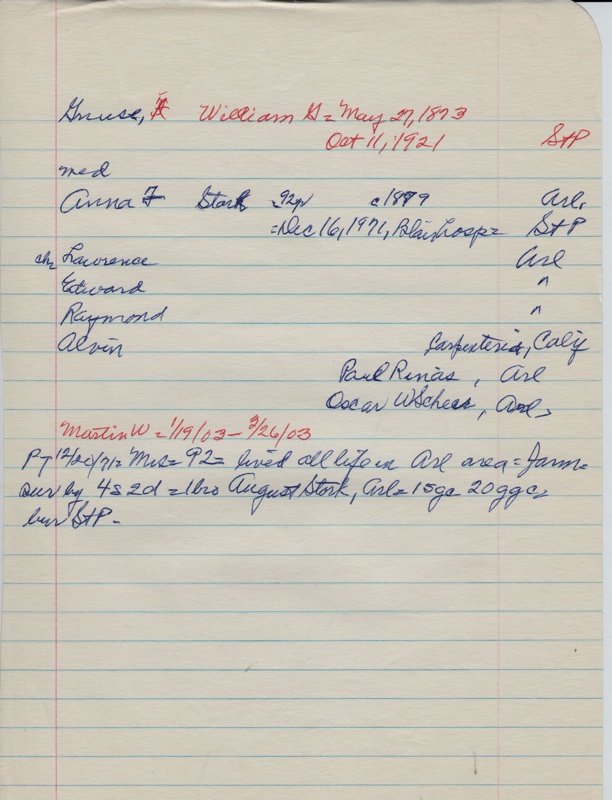 Gnuse, William G = May 27, 1873
Oct 11, 1921 StP
med
Anna F Stork 92yr c1879 Arl.
= Dec 16, 1971, Blair hosp = StP
ch Lawrence Arl
Edward "
Raymond "
Alvin Carpenteria, Calif
Paul Rinas, Arl
Oscar W Scheer, Arl,
Martin W = 1/19/03 - 3/26/03
PT 12/20/71 = Mrs = 92 = lived all life in Arl area = farm =
sur by 4s 2d = 1 bro August Stork, Arl = 15gc 20ggc =
bur StP -